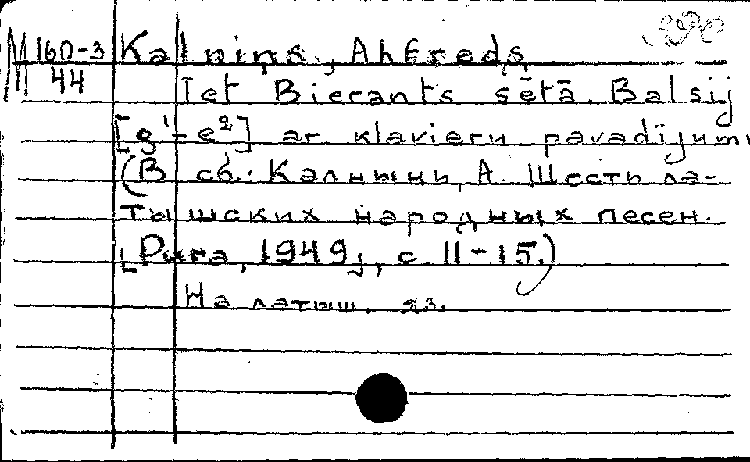 М 160-3 Kalniņš, Alfreds
44
Iet Bierants sētā. Balsij
[g¹-e²] ar klavieru pavadījumu
(В сб.: Калнынь, А. Шесть ла-
тышских народных песен.
[Рига, 1949], с. 11-15.)
На латыш. яз.